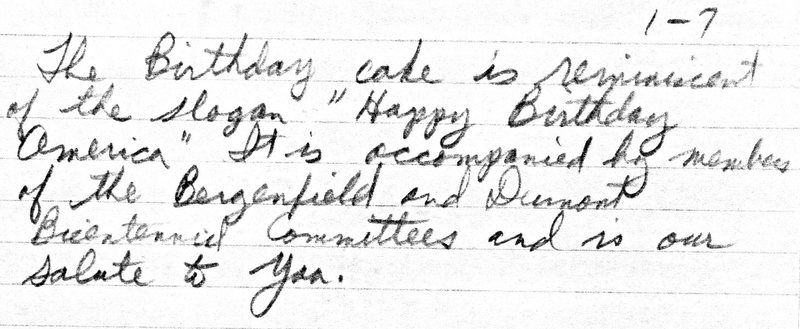 1-7
The Birthday cake is reminiscent
of the slogan "Happy Birthday
America" It is accompanied by members
of the Bergenfield and Dumont
Bicentennial Committees and is our
salute to You.